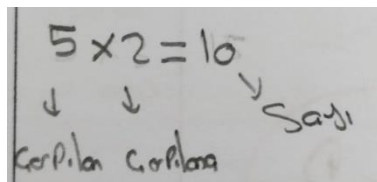 5 x 2 = 10
Sayı
Çarpılan Çarpılana